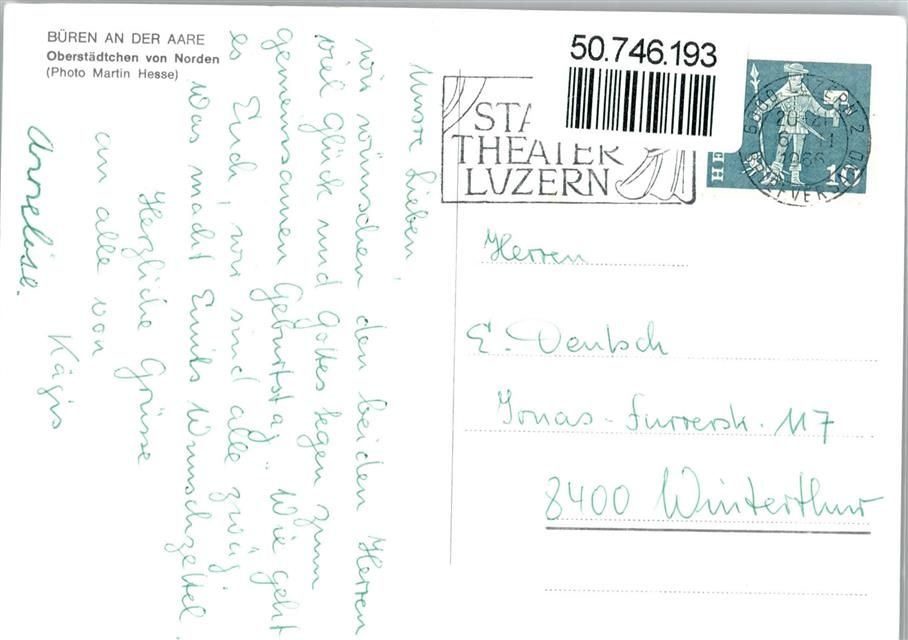 BÜREN AN DER AARE
Oberstädtchen von Norden
(Photo Martin Hesse)
50.746.193
STA
THEATER
LUZERN
HE
10
6000
1966
Unsre Lieben,
wir wünschen den beiden Herren
viel Glück und Gottes Segen zum
gemeinsamen Geburtstag. Wie geht
es Euch, wir sind alle zwäg.
Was macht Emils Wunschzettel.
Herzliche Grüsse
an alle von
Kägis
Anneliese.
Herren
E. Deutsch
Jonas-Furrerstr. 117
8400 Winterthur